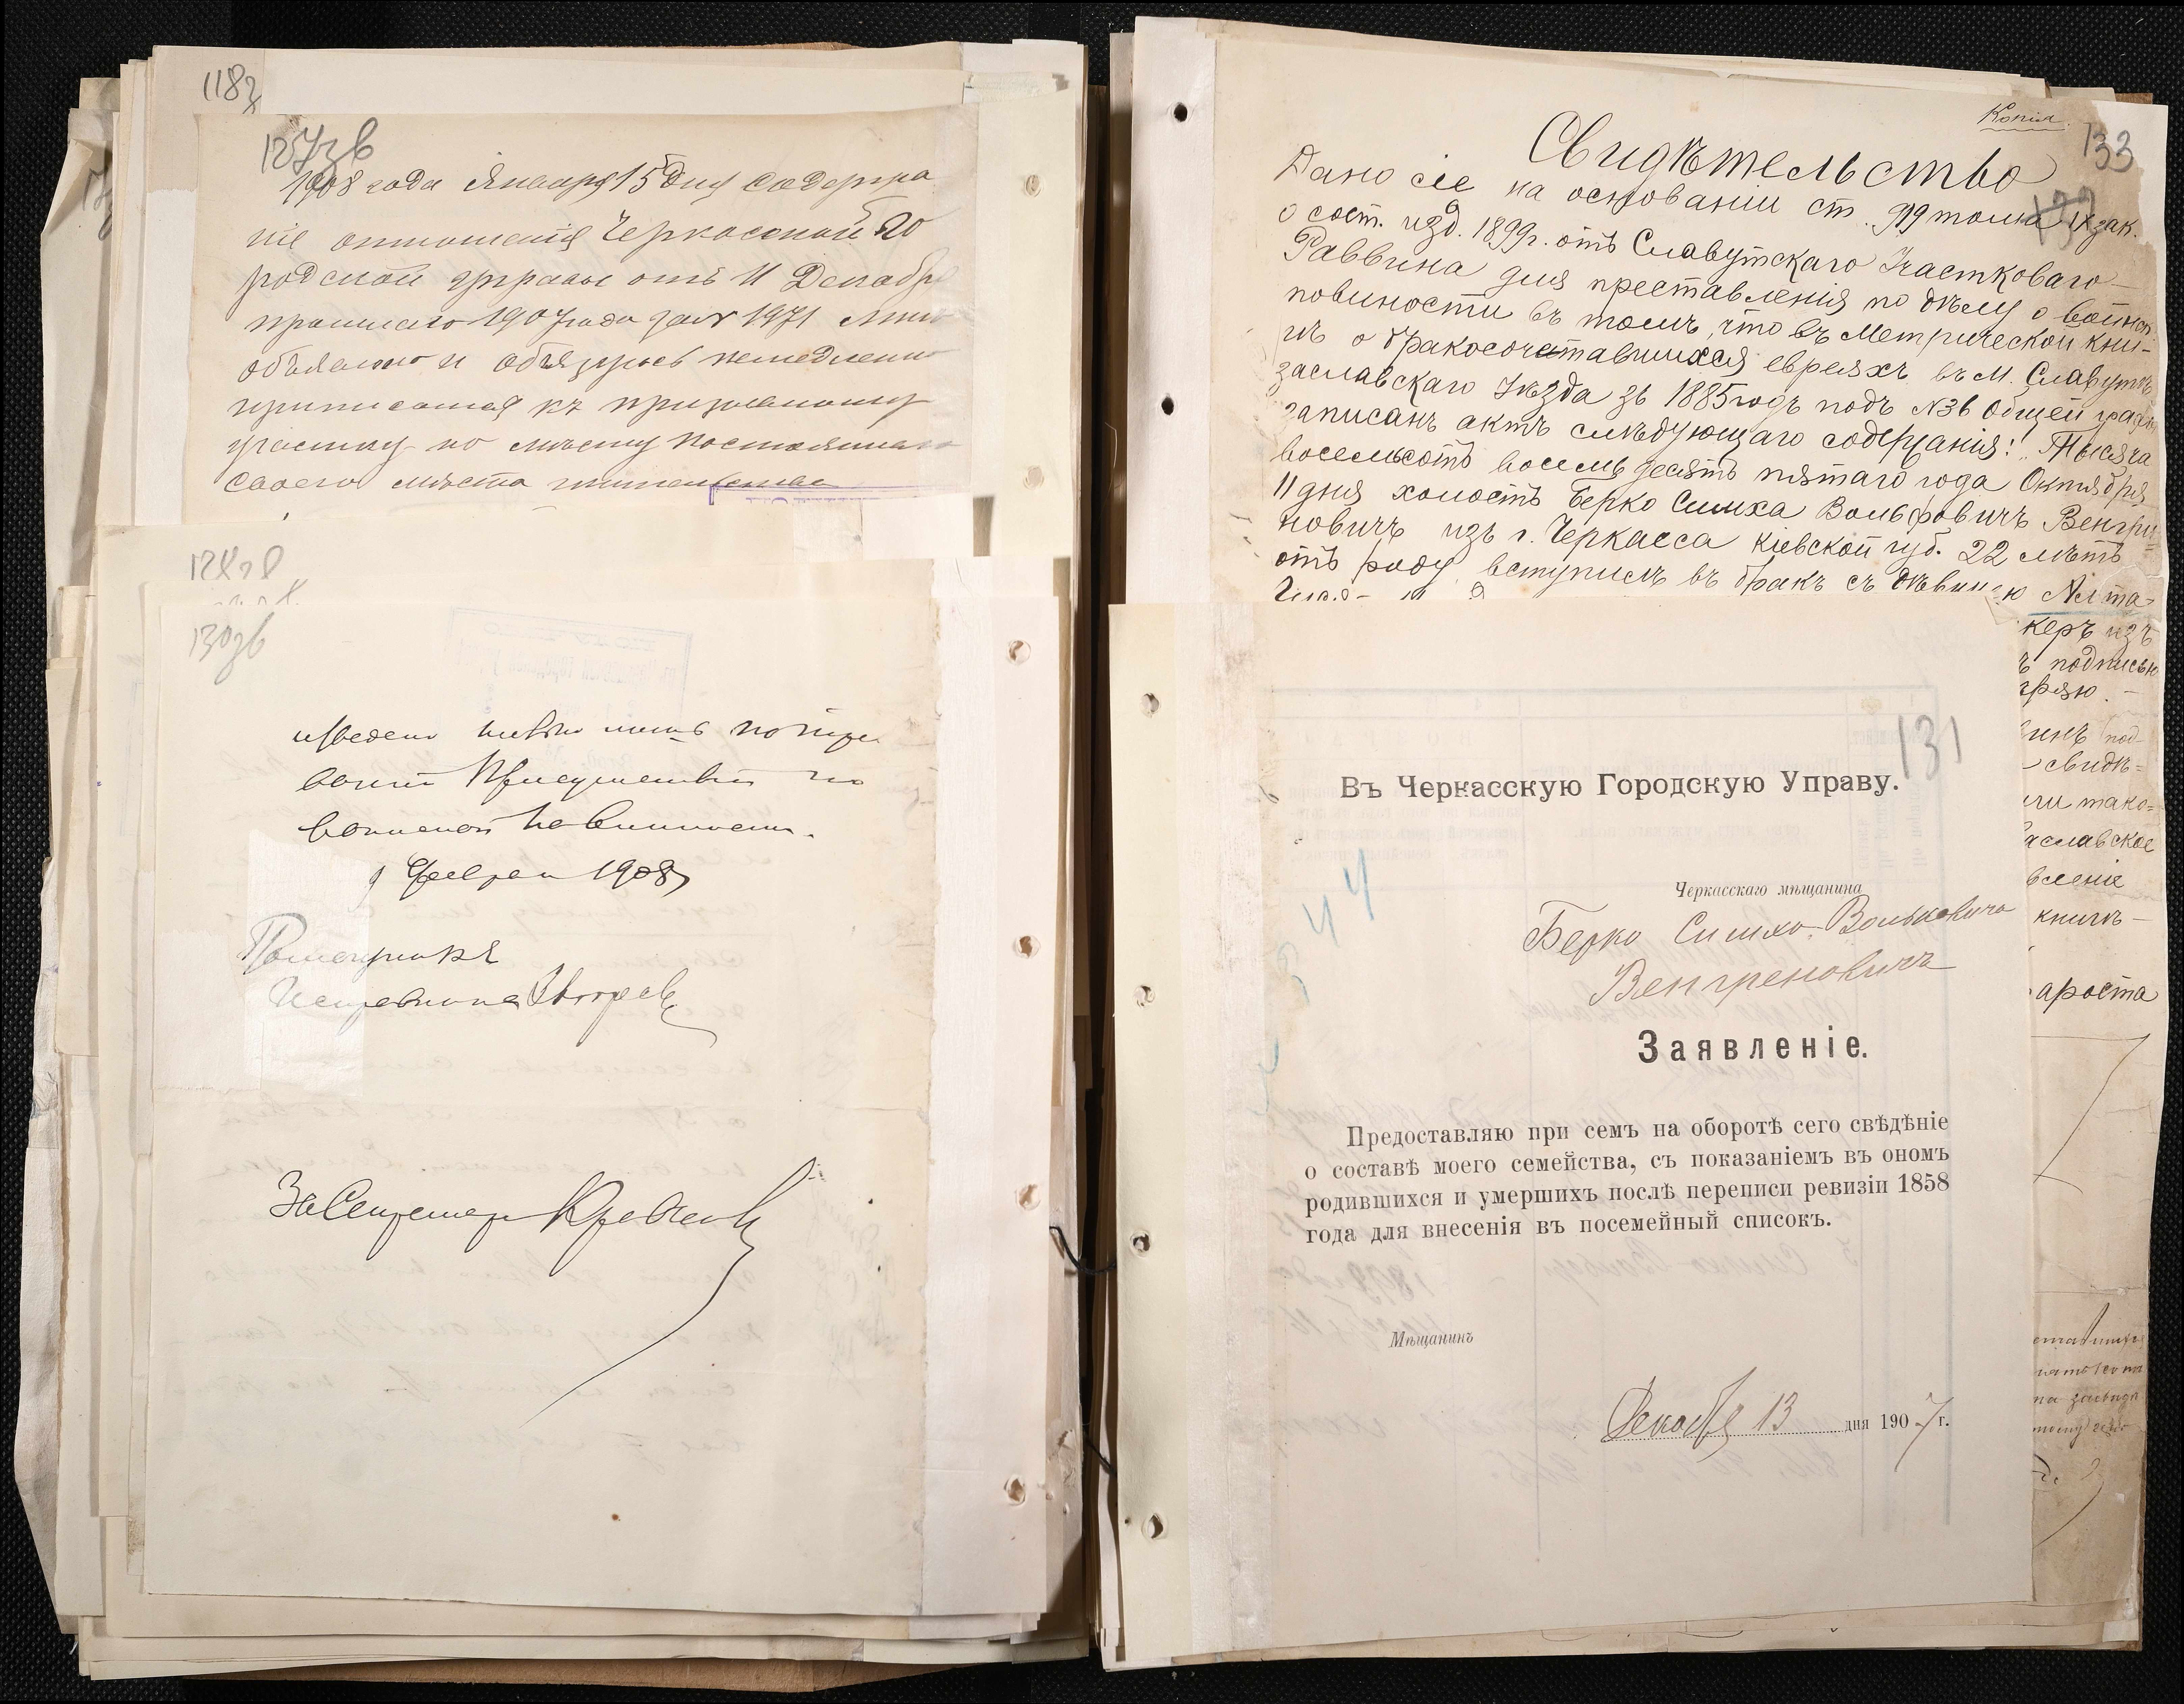 118
127 зв
1908 года Января 15 дня Содержа
ніе отношенія Черкасской Го
родской Управы отъ 11 Декабр
прошлаго 1907 года за № 1971 мнѣ
объявлено и обязуюсь немедленно
приписаться къ призывному
участку по мѣсту постояннаго
своего мѣста жительства
130 зв
воинской повинности.
9 Февраля 1908
Помощникъ
Исправника
За Секретаря
Копія.
133
Свидѣтельство
Дано сіе на основаніи ст. 919 тома IX зак.
о сост. изд. 1899 г. отъ Славутскаго Участковаго
Раввина для преставленія по дѣлу о воинск
повиности въ томъ, что въ Метрической кни-
гѣ о бракосочетавшихся евреяхъ въ М. Славутѣ
Заславскаго Уѣзда зь 1885 годъ подъ № 36 общей графы
записанъ актъ слѣдующаго содержанія: „Тысяча
восемьсотъ восемьдесятъ пятаго года Октября
11 дня холостъ Берко Симха Вольфовичъ Венгри-
новичъ изъ г. Черкасса Кіевской губ. 22 лѣтъ
отъ роду вступилъ въ бракъ съ дѣвицею
керъ изъ
ъ подписью
свидѣ=
или тако=
аславское
вленіе
книгѣ-
ароста
131
Въ Черкасскую Городскую Управу.
Черкасскаго мѣщанина
Берко Симхо Вольковича
Венгреновичъ
Заявленіе.
Предоставляю при семъ на оборотѣ сего свѣдѣніе
о составѣ моего семейства, съ показаніемъ въ ономъ
родившихся и умершихъ послѣ переписи ревизіи 1858
года для внесенія въ посемейный списокъ.
Мѣщанинъ
Декабря 13 дня 1907 г.